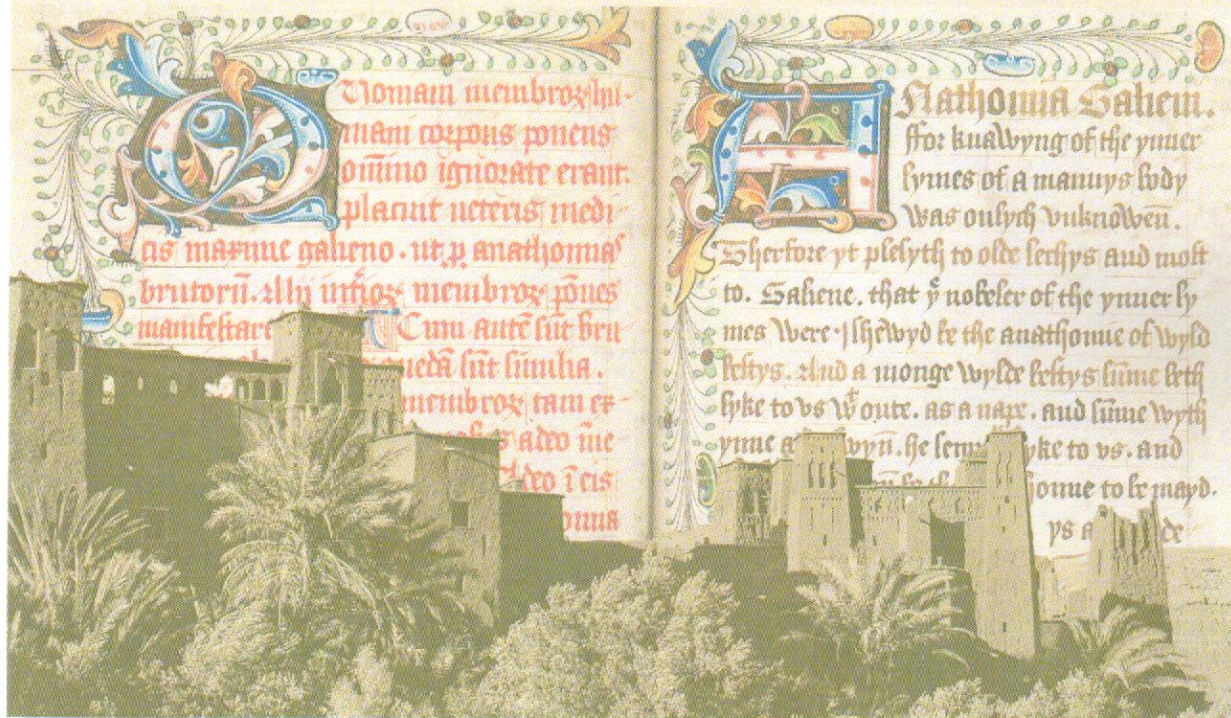 Quoniam membroꝝ hu-
mani corporis ponens
om̄ino ignorate erant.
placuit ueteris medi
cis maxime galieno. ut ꝑ anathomas
brutorū. membroꝝ pōnes
manifestare Cum autē sūt bru
quedā sūt similia.
membroꝝ tam ex-
adeo īne
adeo ī eis
Anathomia Galieni.
ffor knaWyng of the ynner
lymes of a mannys body
Was onlych vnknoWen̄.
Therfore yt plesyth to olde lechys and most
to. Galiene. that ẏ nobeler of the ynner ly
mes Were shewyd be the anathomie of Wyld
bestys. And a monge Wylde bestys sūme beth
lyke to vs Wᵗoute. as a nape. and sūme Wyth
ynne a he lyke to vs. and
to be mayd.
ys a